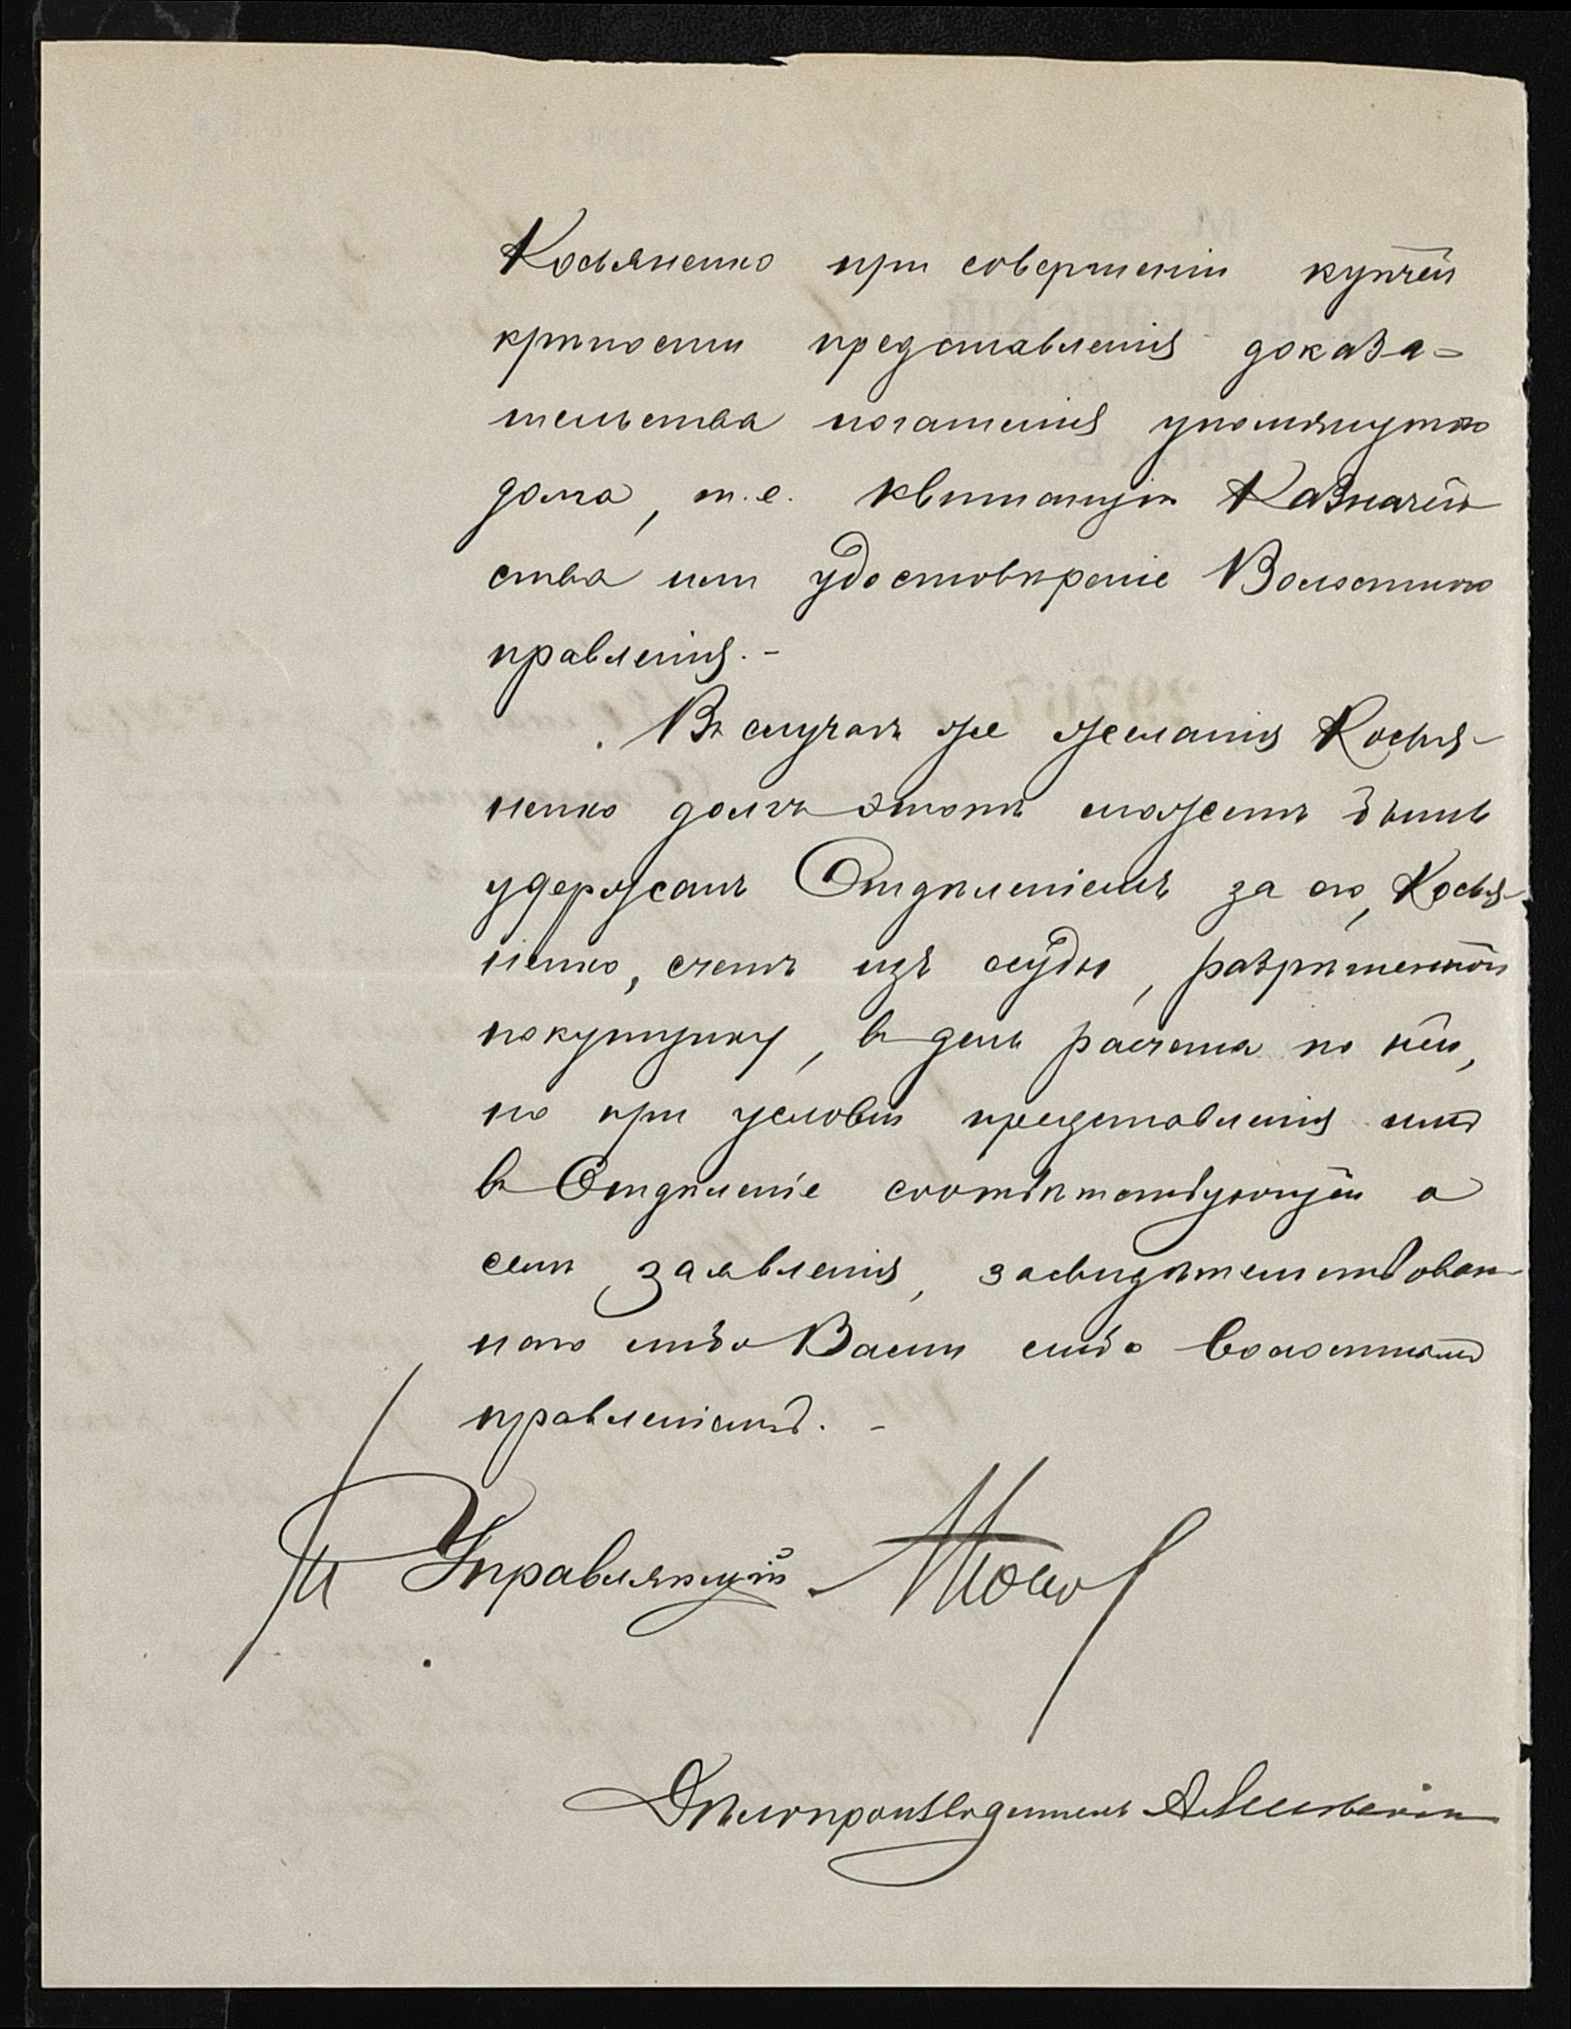 Косьяненко при совершеніи купчей
крѣпости представленія доказа=
тельства погашенія упомянутаго
долга, т.е. квитанціи Казначей
ства или удостовѣреніе Волостного
правленія.-
Въ случаѣ же желанія Косья-
ненко долгъ этотъ можетъ быть
удержанъ Отдѣленіемъ за его, Косья-
ненко, счетъ изъ ссуды, разрѣшенной
покупщику, въ день расчета по ней,
но при условіи представленія имъ
въ Отдѣленіе соотвѣтствующей о
семъ заявленія, засвидѣтельствован-
наго либо Вами либо Волостнымъ
правленіемъ. -
Управляющій
Дѣлопроизводитель